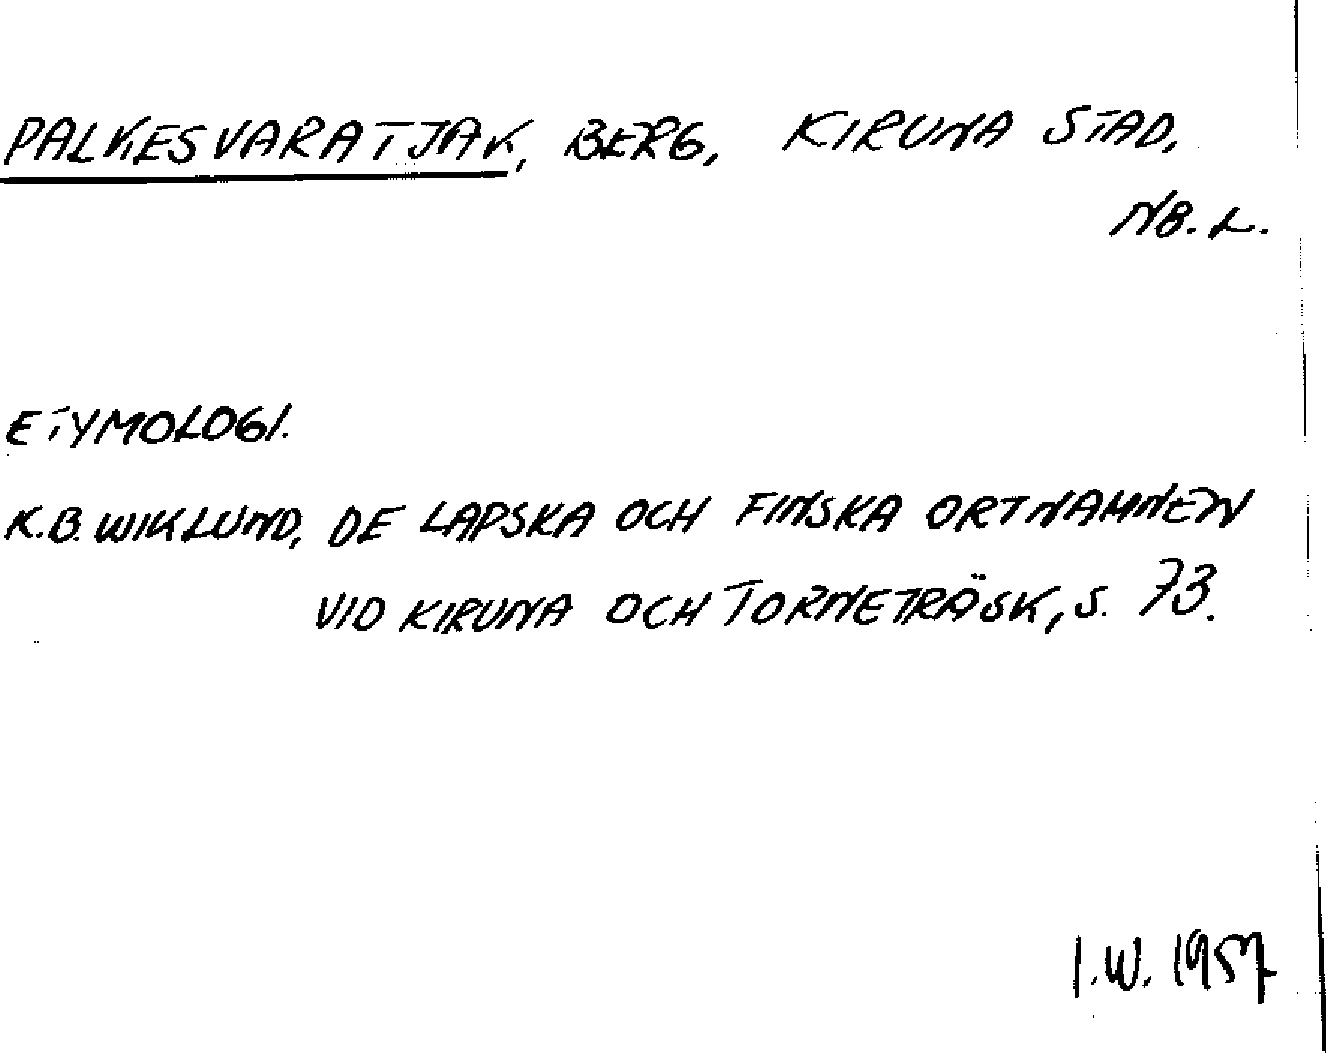 PALKESVARATJAK, BERG, KIRUNA STAD,
NB. L.
ETYMOLOGI.
K.B. WIKLUND, DE LAPSKA OCH FINSKA ORTNAMNEN
VID KIRUNA OCH TORNETRÄSK, S. 73.
I.W. 1957